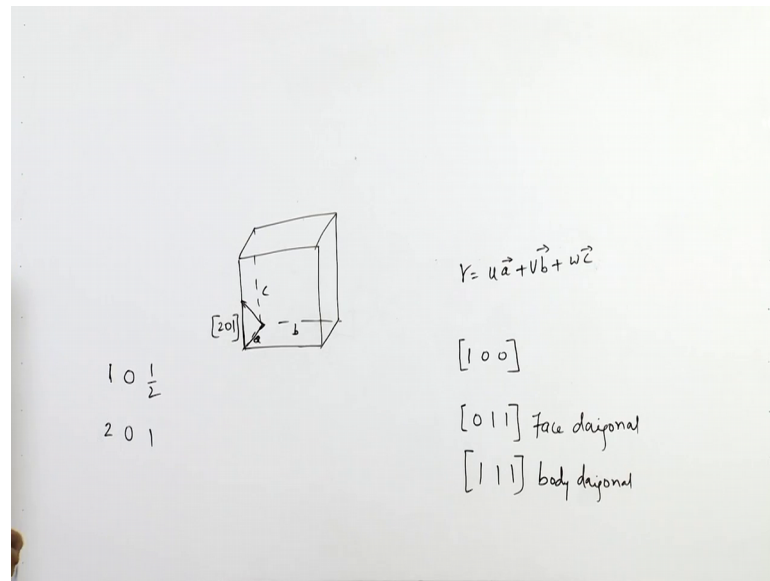 c
[201]
b
a
1 0 1/2
2 0 1
r = u a⃗ + v b⃗ + w c⃗
[1 0 0]
[0 1 1] Face daigonal
[1 1 1] body daigonal